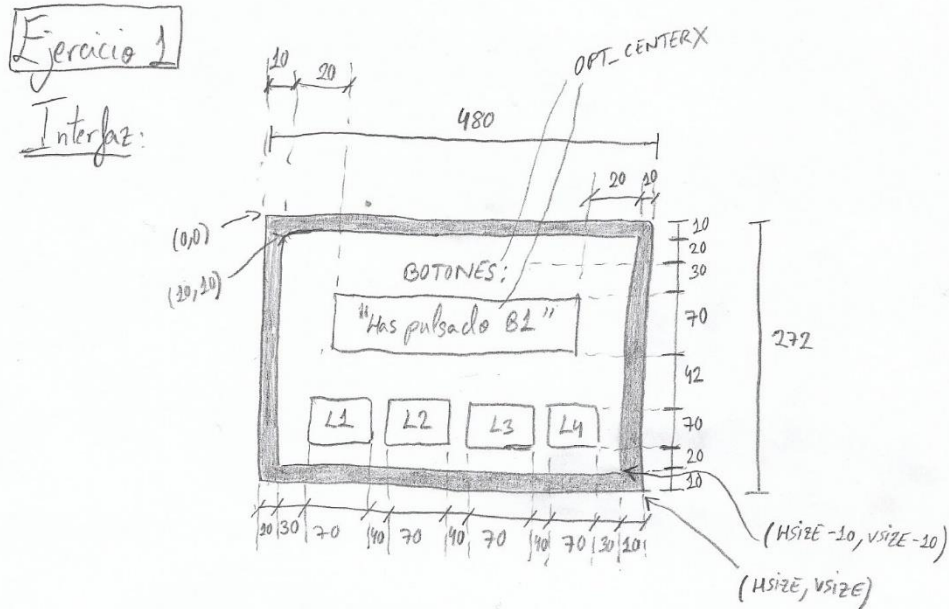 Ejercicio 1
Interfaz:
10
20
OPT_CENTERX
480
20 10
(0,0)
(10,10)
BOTONES:
"Has pulsado B1"
10
20
30
70
42
70
20
10
272
L1 L2 L3 L4
10 30 70 40 70 40 70 40 70 30 10
(HSIZE-10, VSIZE-10)
(HSIZE, VSIZE)